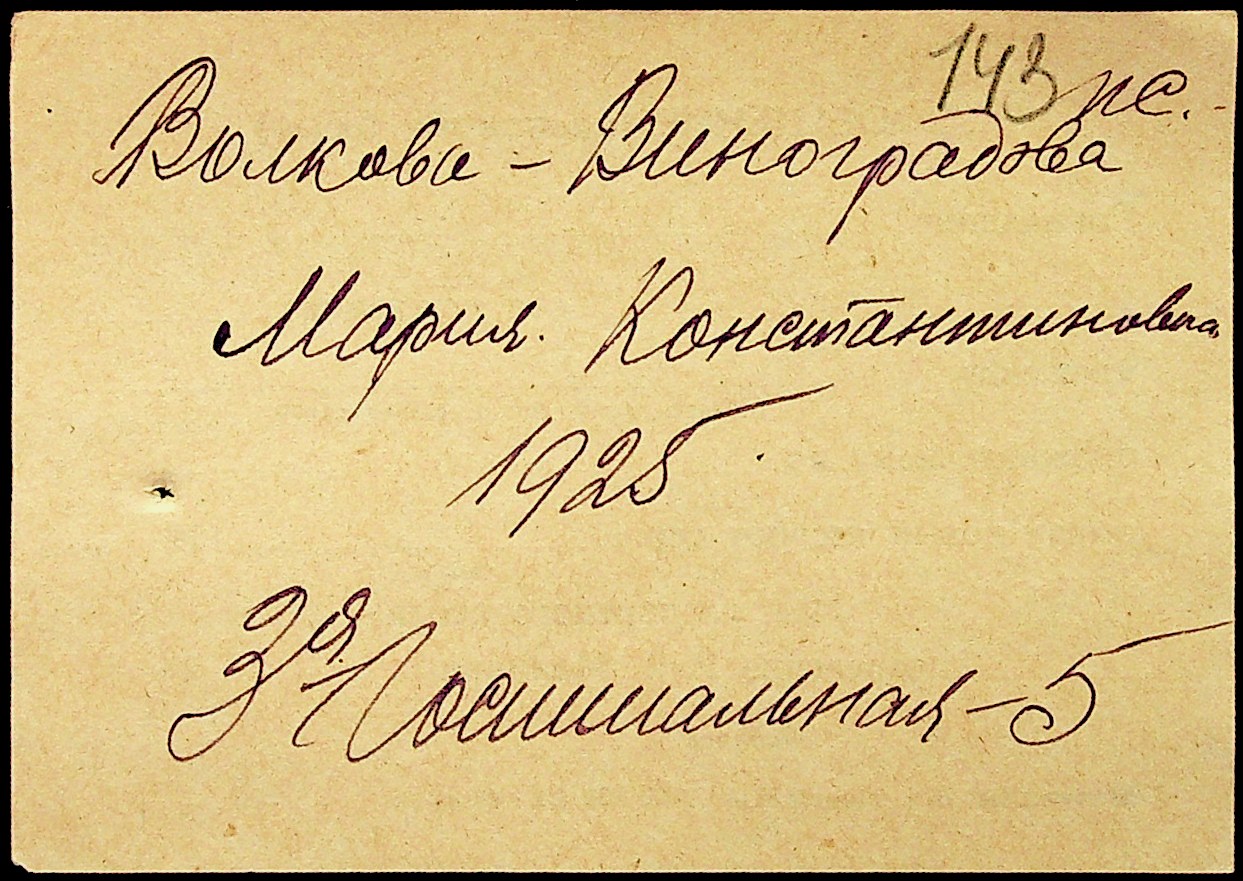 143 пс.
Волкова - Виноградова
Мария. Константиновна
1925
3я Госпитальная - 5